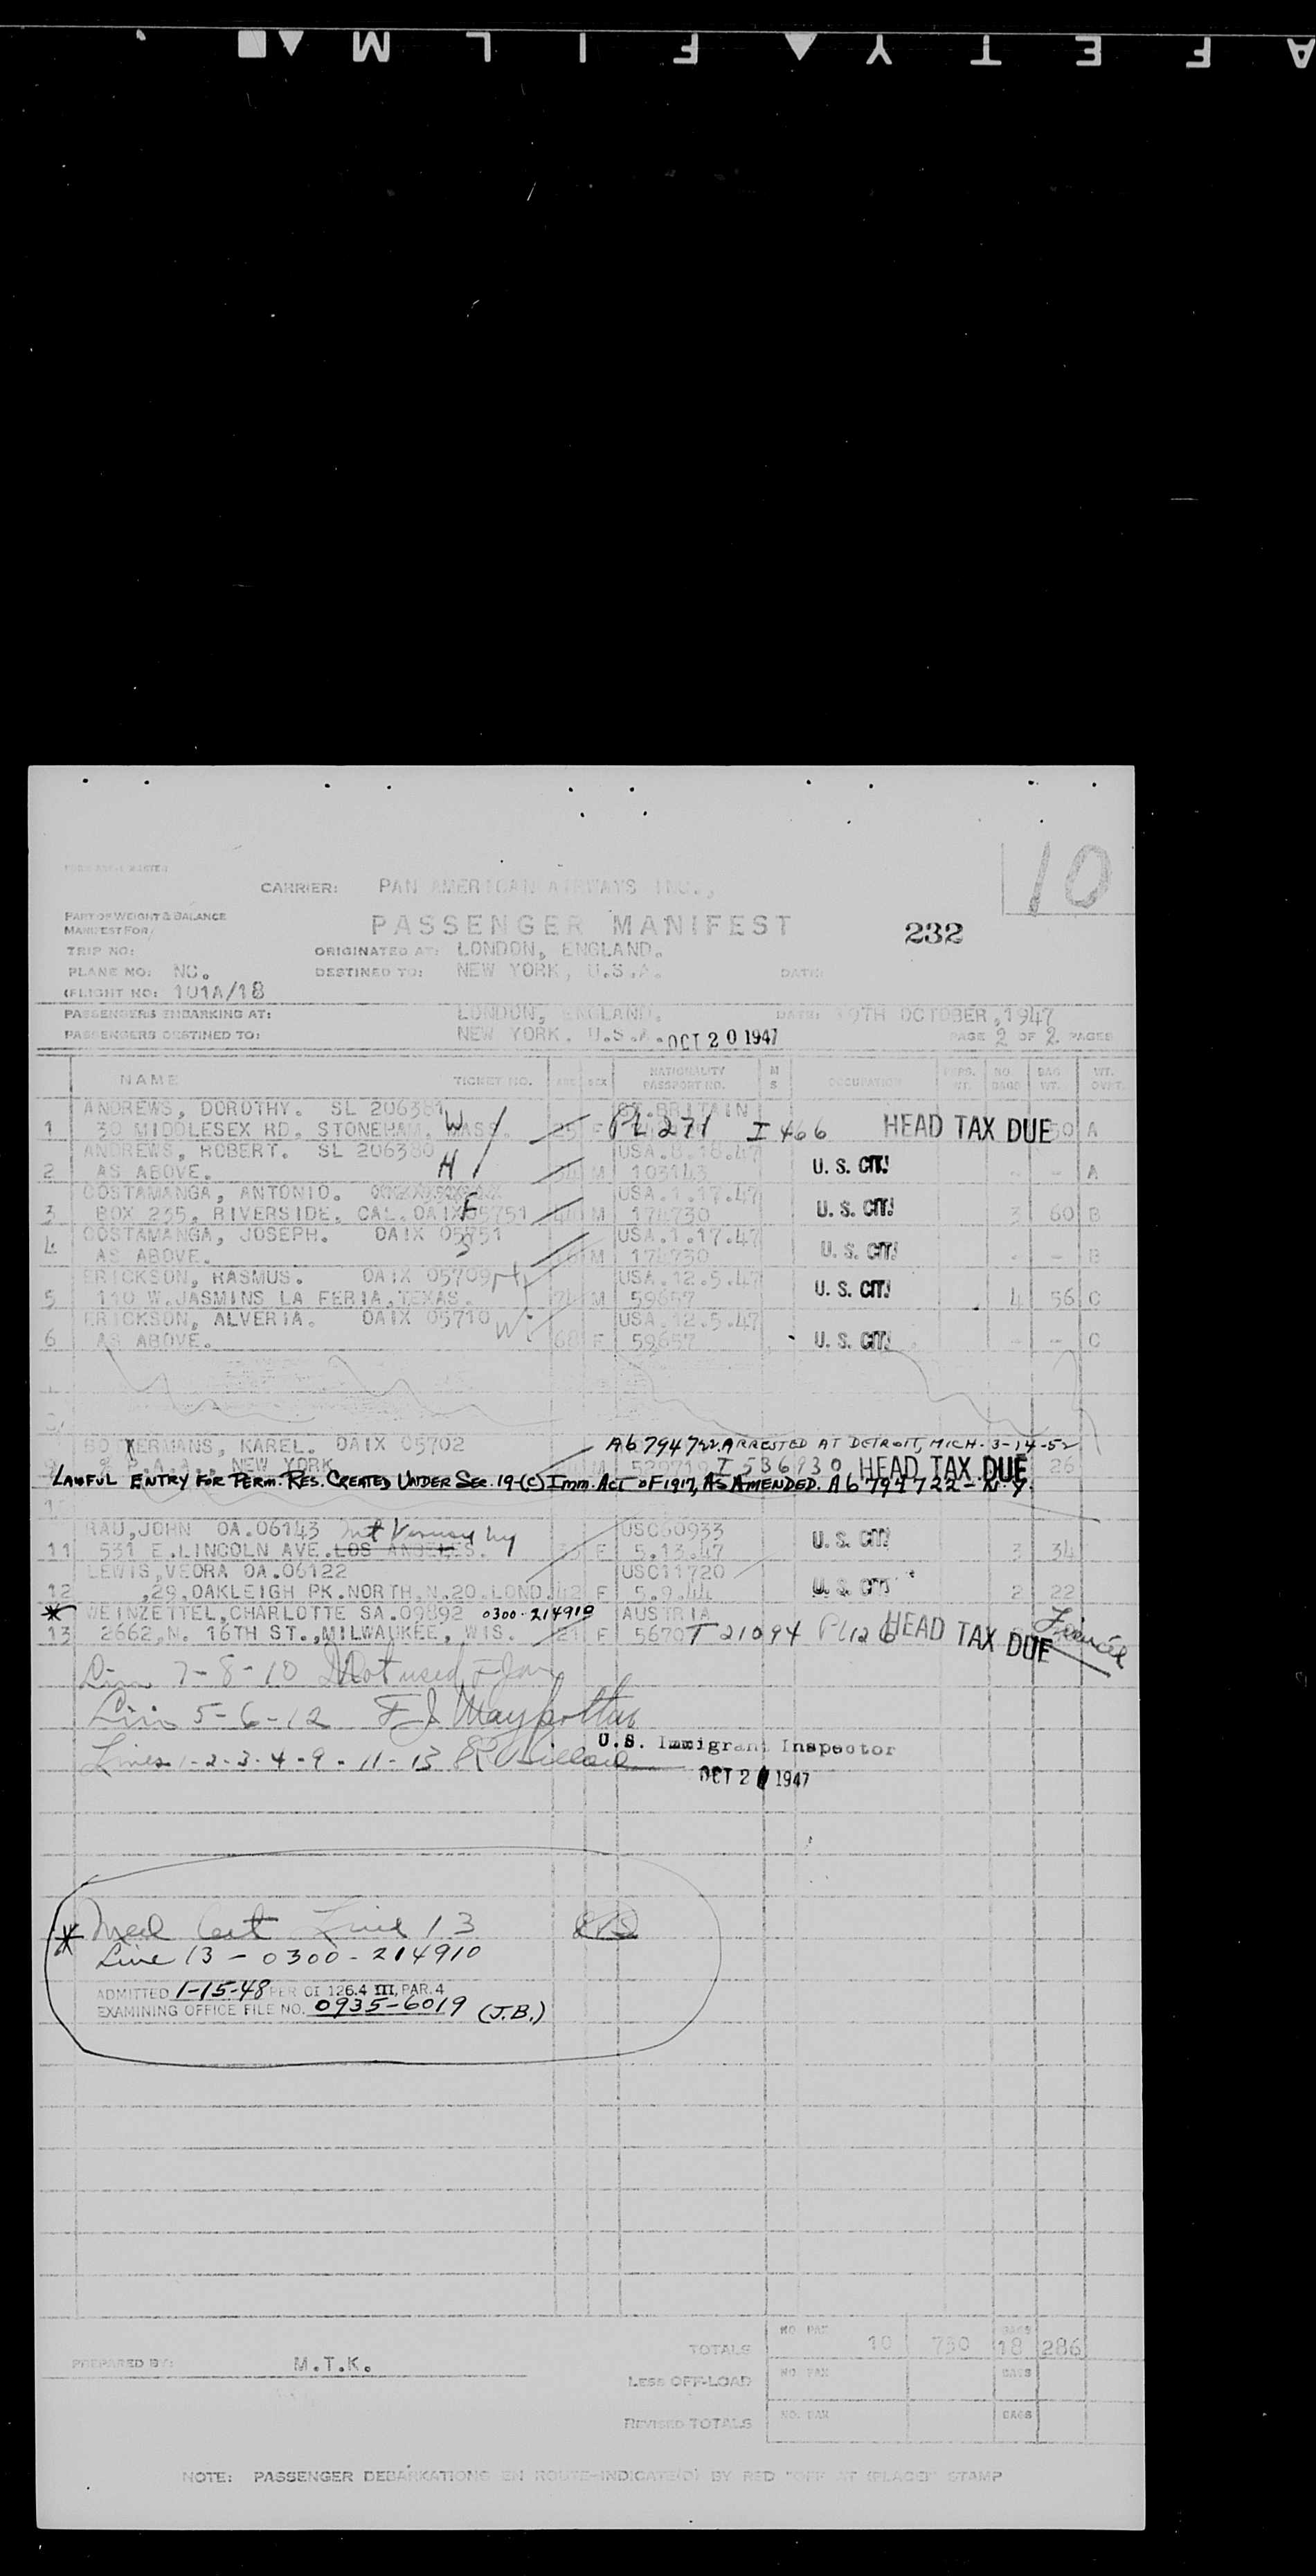 SAFETY ▲ FILM ▲ ■
10
CARRIER: PAN AMERICAN AIRWAYS INC.,
PART OF WEIGHT & BALANCE
MANIFEST FOR/
PASSENGER MANIFEST
232
TRIP NO:
ORIGINATED AT: LONDON, ENGLAND.
PLANE NO: NC.
DESTINED TO: NEW YORK, U.S.A.
DATE:
(FLIGHT NO: 101A/18
PASSENGERS EMBARKING AT: LONDON, ENGLAND. DATE: 19TH OCTOBER, 1947
PASSENGERS DESTINED TO: NEW YORK. U.S.A. OCT 20 1947 PAGE 2 OF 2 PAGES
NAME TICKET NO. AGE SEX NATIONALITY PASSPORT NO. M S OCCUPATION PERS. WT. NO. BAGS BAG WT. WT. OVWT.
ANDREWS, DOROTHY. SL 206381 W GT.BRITAIN
1 30 MIDDLESEX RD. STONEHAM, MASS. F PL 271 I 466 HEAD TAX DUE A
ANDREWS, ROBERT. SL 206380 H USA.8.18.47
2 AS ABOVE. M 103143 U. S. CIT! - - A
COSTAMANGA, ANTONIO. F USA.1.17.47
3 BOX 235, RIVERSIDE, CAL. OAIX 05751 M 174730 U. S. CIT! 3 60 B
COSTAMANGA, JOSEPH. OAIX 05751 S USA.1.17.47
4 AS ABOVE. M 174730 U. S. CIT! - - B
ERICKSON, RASMUS. OAIX 05709 H USA.12.5.47
5 110 W.JASMINS LA FERIA,TEXAS. M 59657 U. S. CIT! 4 56 C
ERICKSON, ALVERIA. OAIX 05710 W USA.12.5.47
6 AS ABOVE. 68 F 59657 U. S. CIT! - - C
KAREL. OAIX 05702 A6 794 722 ARRESTED AT DETROIT, MICH. 3-14-52
% P.A.A., NEW YORK M I 536930 HEAD TAX DUE 26
LAWFUL ENTRY FOR PERM. RES. CREATED UNDER SEC. 19-(C) IMM. ACT OF 1917, AS AMENDED. A6 794 722 - N.Y.
RAU,JOHN OA.06143 Mt Vernon Ny USC60933
11 531 E.LINCOLN AVE. LOS ANGELES. F 5.13.47 U. S. CIT! 3 34
LEWIS,VEORA OA.06122 USC11720
12 ,29,OAKLEIGH PK.NORTH,N.20.LOND. 42 F 5.9.44 U. S. CIT! 2 22
* WEINZETTEL,CHARLOTTE SA.09892 0300-214910 AUSTRIA
13 2662,N. 16TH ST.,MILWAUKEE, WIS. 21 F 5670 T 21094 PL126 HEAD TAX DUE Fiancée
Lines 7-8-10 Not used
Lines 5-6-12
Lines 1-2-3-4-9-11-13
U.S. Immigrant Inspector
OCT 20 1947
* Med Cert Line 13
Line 13 - 0300 - 214910
ADMITTED 1-15-48 PER OI 126.4 III, PAR. 4
EXAMINING OFFICE FILE NO. 0935-6019 (J.B.)
TOTALS NO. PAX 10 BAGS 18 286
PREPARED BY: M.T.K.
LESS OFF-LOAD NO. PAX BAGS
REVISED TOTALS NO. PAX BAGS
NOTE: PASSENGER DEBARKATIONS EN ROUTE-INDICATE(D) BY RED "OFF AT (PLACE)" STAMP